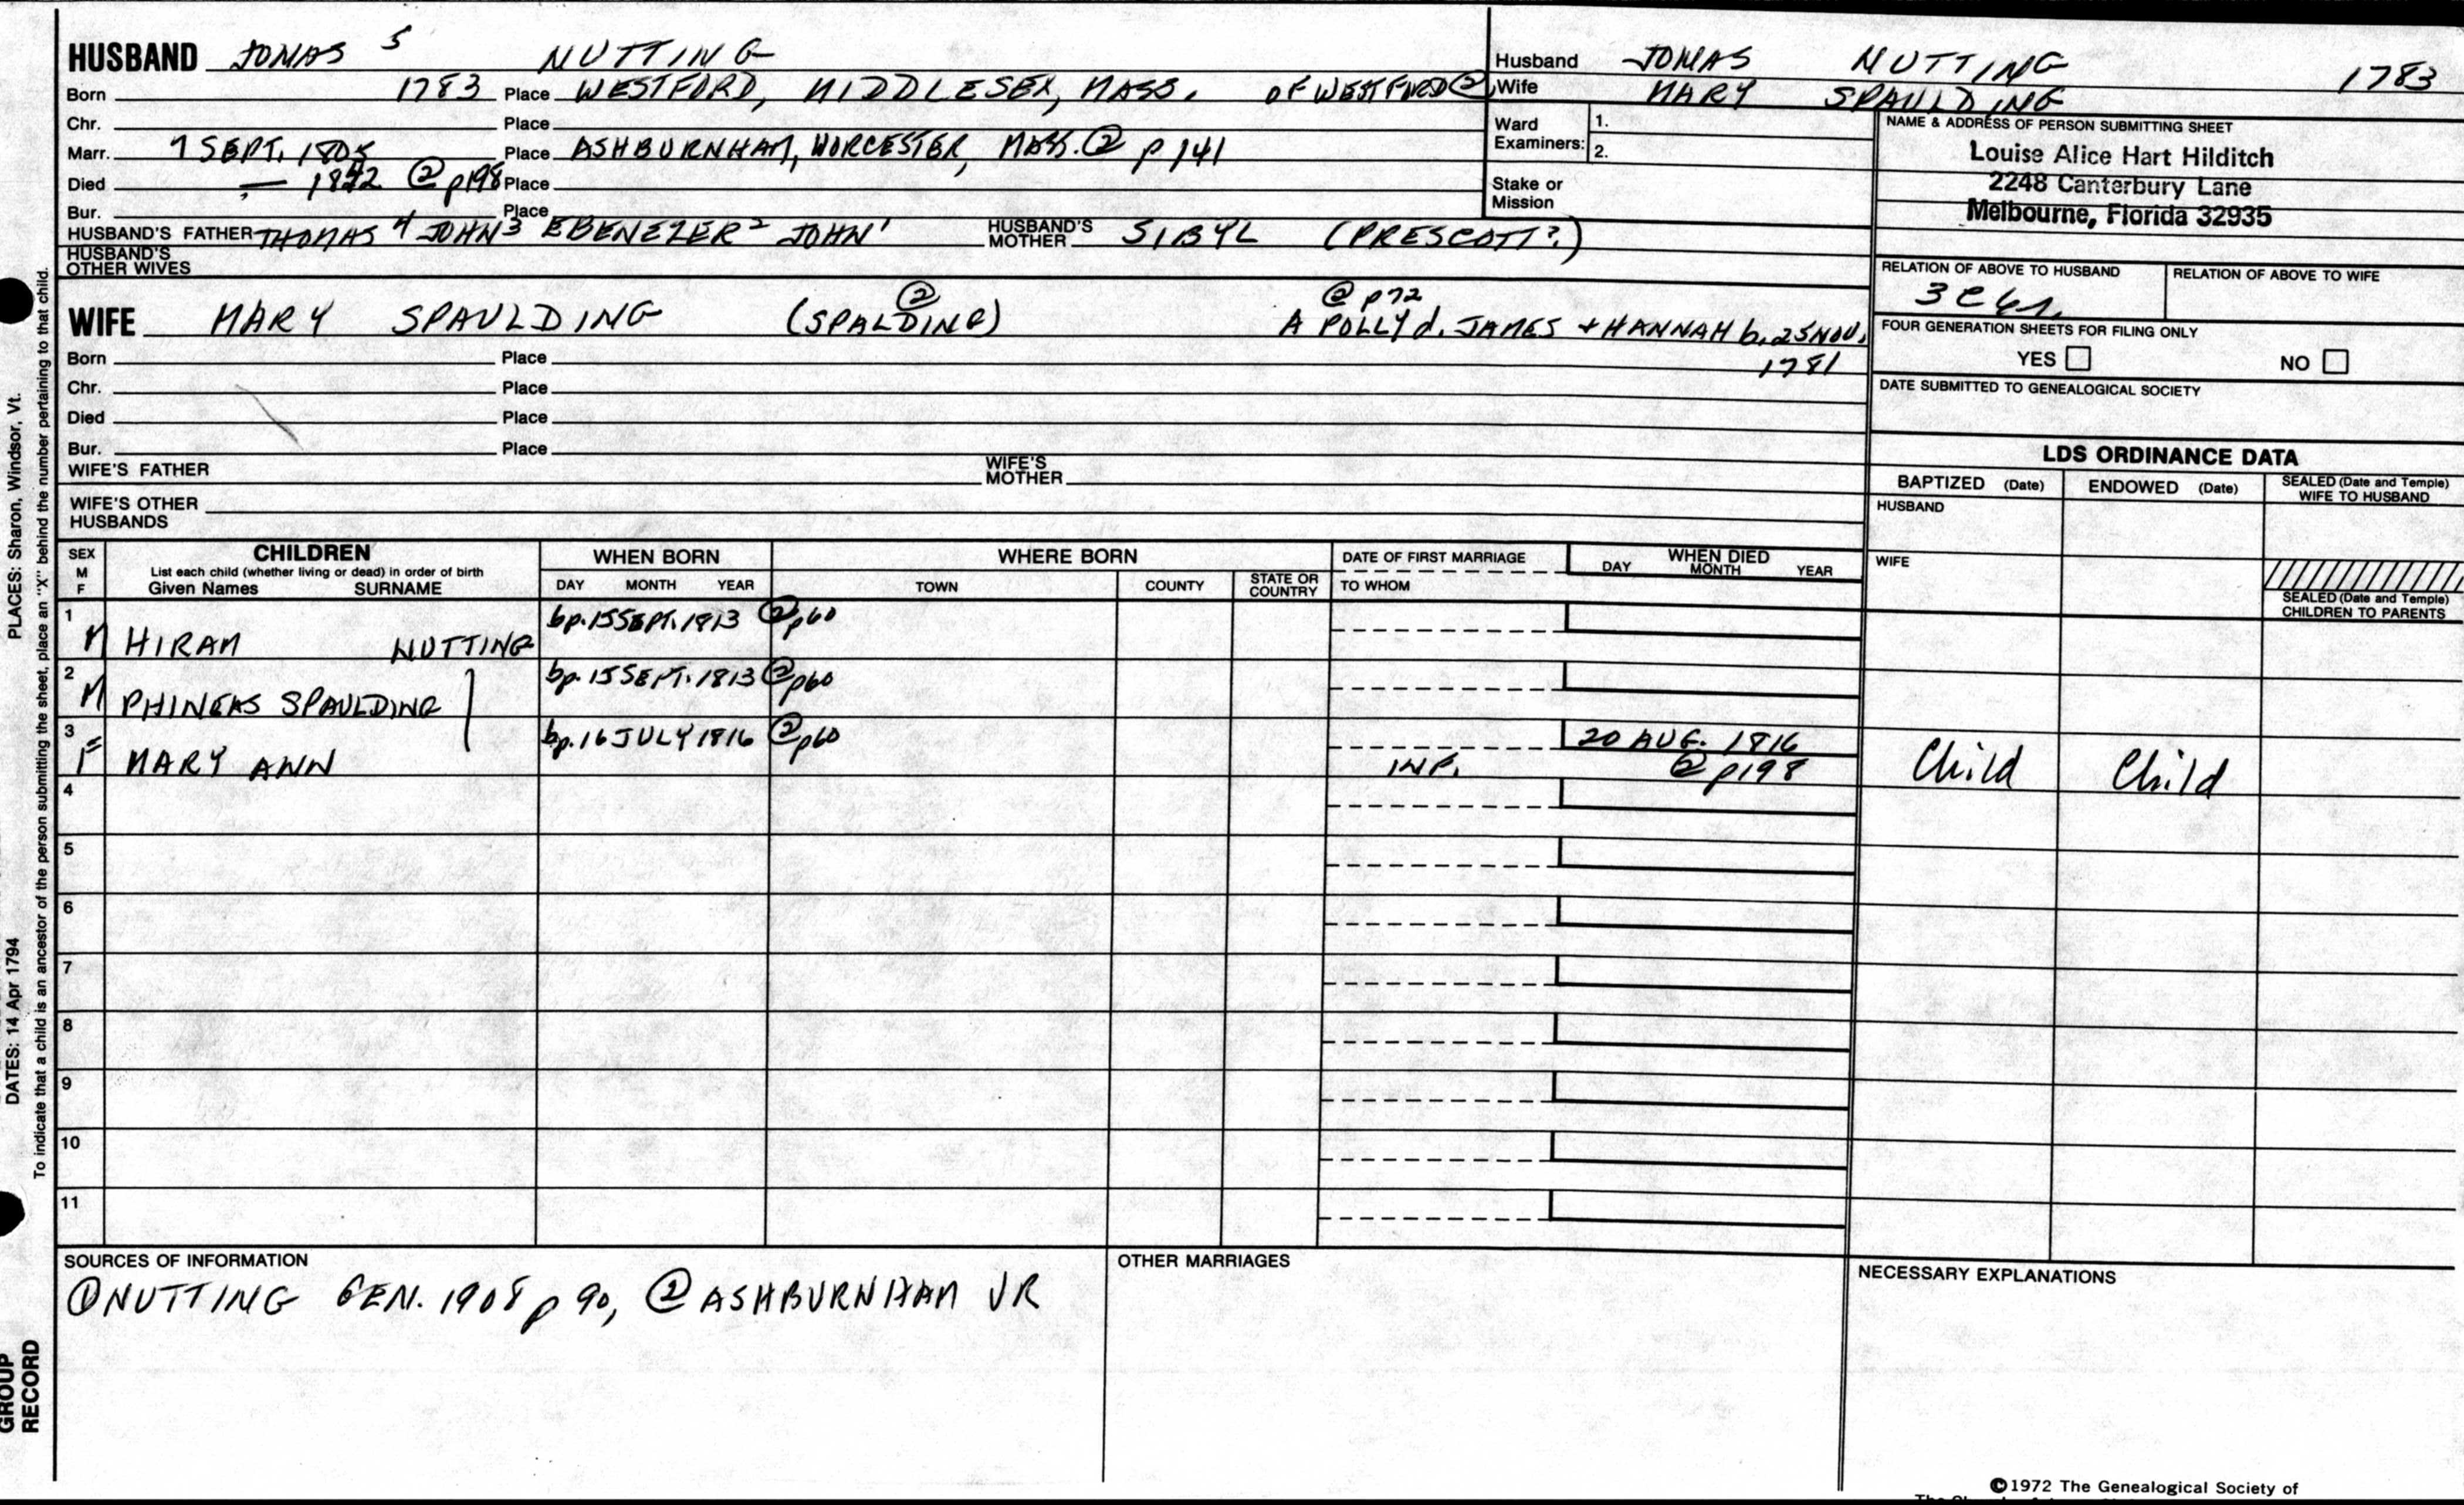 HUSBAND JONAS 5 NUTTING
Born 1783 Place WESTFORD, MIDDLESEX, MASS. OF WESTFORD ②
Chr. Place
Marr. SEPT. Place ASHBURNHAM, WORCESTER, MASS. ② p 141
Died — ② p198 Place
Bur. Place
HUSBAND'S FATHER THOMAS 4 JOHN 3 EBENEZER 2 JOHN 1 HUSBAND'S MOTHER SIBYL (PRESCOTT?)
HUSBAND'S OTHER WIVES
Husband JONAS NUTTING 1783
Wife MARY SPAULDING
Ward Examiners: 1.
2.
Stake or Mission
NAME & ADDRESS OF PERSON SUBMITTING SHEET
Louise Alice Hart Hilditch
2248 Canterbury Lane
Melbourne, Florida 32935
RELATION OF ABOVE TO HUSBAND RELATION OF ABOVE TO WIFE
3 C
FOUR GENERATION SHEETS FOR FILING ONLY
YES NO
DATE SUBMITTED TO GENEALOGICAL SOCIETY
② ② p72
WIFE MARY SPAULDING (SPALDING) A POLLY d. JAMES + HANNAH b. 25 NOV.
1781
Born Place
Chr. Place
Died Place
Bur. Place
WIFE'S FATHER WIFE'S MOTHER
WIFE'S OTHER HUSBANDS
LDS ORDINANCE DATA
BAPTIZED (Date) ENDOWED (Date) SEALED (Date and Temple) WIFE TO HUSBAND
HUSBAND
WIFE
SEALED (Date and Temple) CHILDREN TO PARENTS
SEX M F CHILDREN WHEN BORN WHERE BORN DATE OF FIRST MARRIAGE WHEN DIED
List each child (whether living or dead) in order of birth
Given Names SURNAME DAY MONTH YEAR TOWN COUNTY STATE OR COUNTRY TO WHOM DAY MONTH YEAR
1 M HIRAM NUTTING bp. 15 SEPT. 1813 ② p60
2 M PHINEAS SPAULDING bp. 15 SEPT. 1813 ② p60
3 F MARY ANN bp. 16 JULY 1816 ② p60 INF. 20 AUG. 1816 ② p198 Child Child
4
5
6
7
8
9
10
11
SOURCES OF INFORMATION
① NUTTING GEN. 1908 p 90, ② ASHBURNHAM VR
OTHER MARRIAGES
NECESSARY EXPLANATIONS
©1972 The Genealogical Society of
PLACES: Sharon, Windsor, Vt.
DATES: 14 Apr 1794
To indicate that a child is an ancestor of the person submitting the sheet, place an "X" behind the number pertaining to that child.
GROUP
RECORD